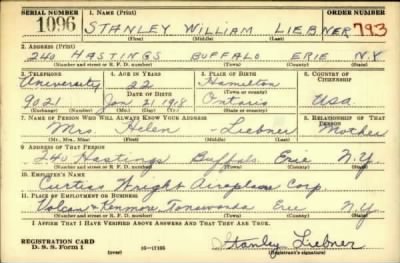 SERIAL NUMBER 1. NAME (Print) ORDER NUMBER
1096 STANLEY WILLIAM LIEBNER 793
(First) (Middle) (Last)
2. ADDRESS (Print)
240 HASTINGS BUFFALO ERIE N.Y
(Number and street or R. F. D. number) (Town) (County) (State)
3. TELEPHONE 4. AGE IN YEARS 5. PLACE OF BIRTH 6. COUNTRY OF CITIZENSHIP
University 22 Hamilton
DATE OF BIRTH (Town or county)
9021 Jan 21 1918 Ontario USA
(Exchange) (Number) (Mo.) (Day) (Yr.) (State or country)
7. NAME OF PERSON WHO WILL ALWAYS KNOW YOUR ADDRESS 8. RELATIONSHIP OF THAT PERSON
Mrs. Helen Liebner Mother
(Mr., Mrs., Miss) (First) (Middle) (Last)
9. ADDRESS OF THAT PERSON
240 Hastings Buffalo Erie N.Y.
(Number and street or R. F. D. number) (Town) (County) (State)
10. EMPLOYER'S NAME
Curtiss Wright Aeroplane Corp
11. PLACE OF EMPLOYMENT OR BUSINESS
Vulcan & Kenmore Tonawanda Erie N.Y.
(Number and street or R. F. D. number) (Town) (County) (State)
I AFFIRM THAT I HAVE VERIFIED ABOVE ANSWERS AND THAT THEY ARE TRUE.
REGISTRATION CARD
D. S. S. Form 1 16—17105 Stanley Liebner
(Registrant's signature)